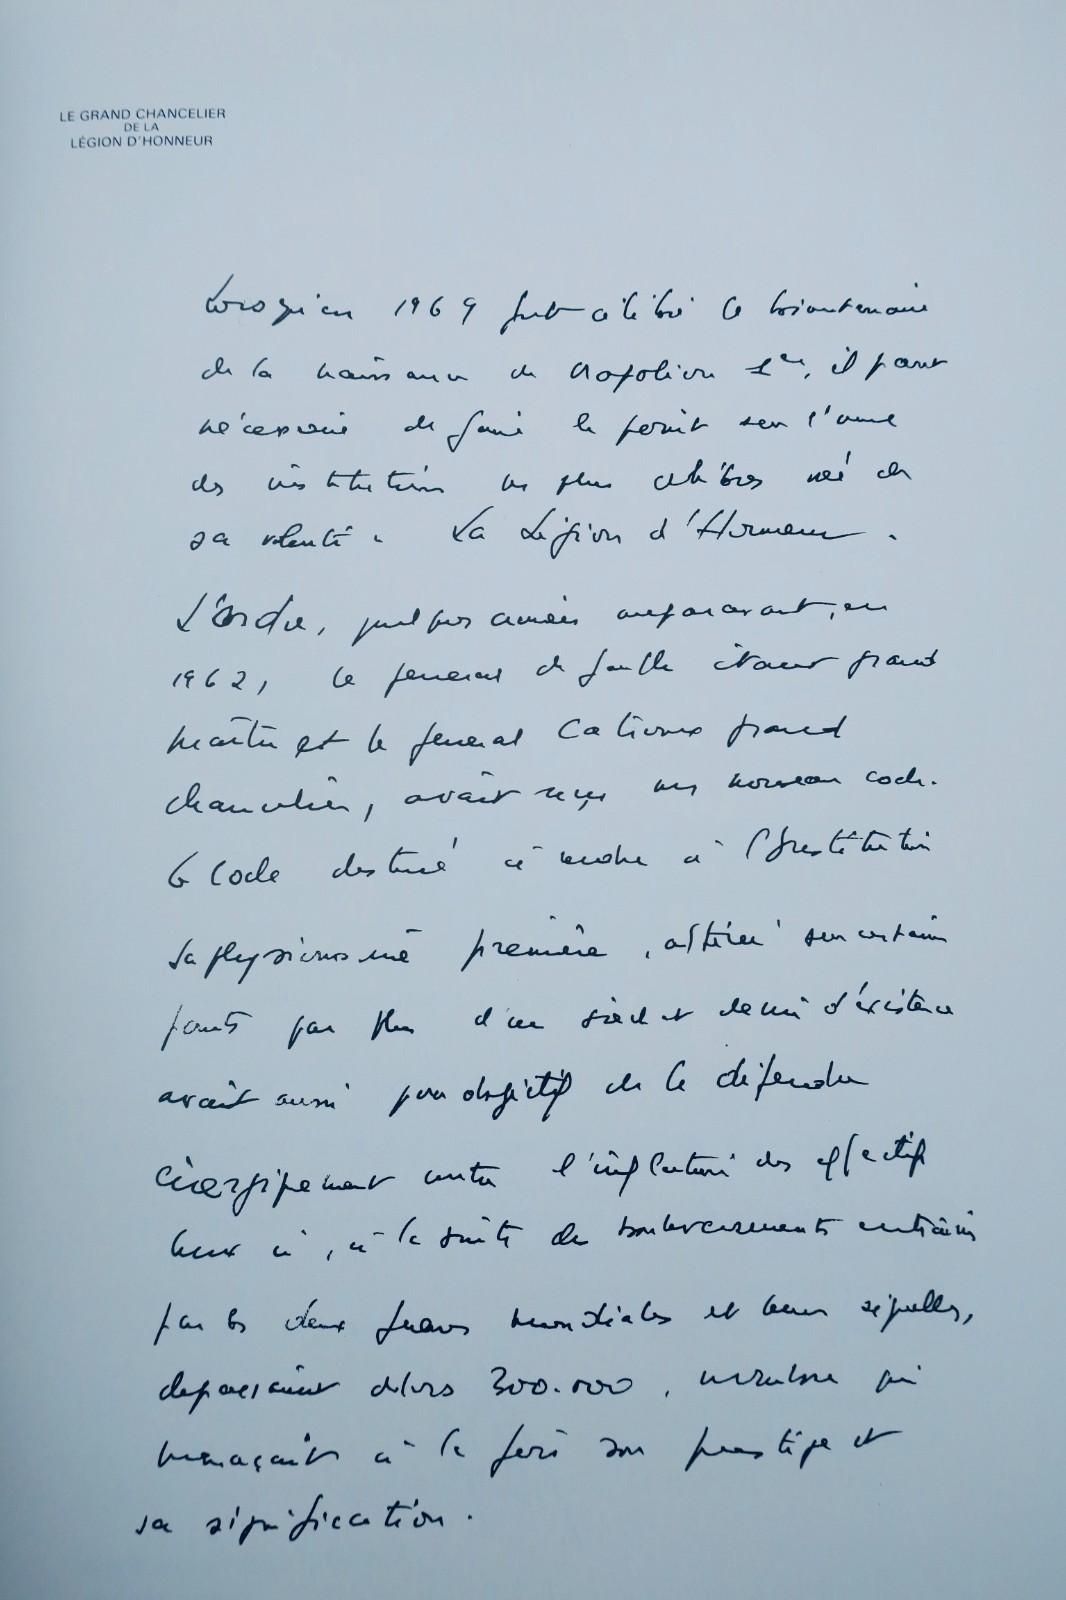 LE GRAND CHANCELIER
DE LA
LÉGION D'HONNEUR
Lorsqu'en 1969 fut célébré le bicentenaire
de la naissance de Napoléon 1er, il parut
nécessaire de faire le point sur l'une
des institutions les plus célèbres née de
sa volonté : La Légion d'Honneur.
L'Ordre, quelques années auparavant, en
1962, le général de Gaulle étant grand
maître et le général Catroux grand
chancelier, avait reçu un nouveau code.
Ce Code destiné à rendre à l'Institution
sa physionomie première, altérée sur certains
points par plus d'un siècle et demi d'existence
avait aussi pour objectif de la défendre
énergiquement contre l'inflation des effectifs
Ceux ci, à la suite des bouleversements entraînés
par les deux guerres mondiales et leurs séquelles,
dépassaient alors 300.000, nombre qui
menaçait à la fois son prestige et
sa signification.